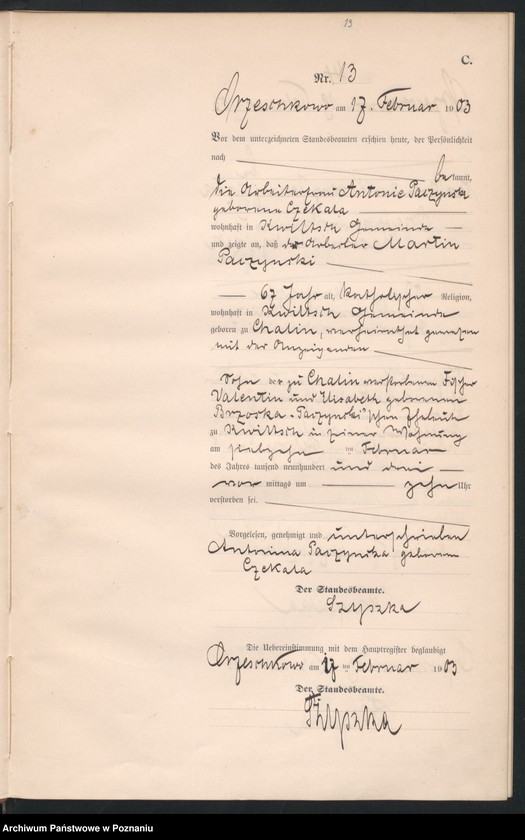 13
C.
Nr. 13
Orzeschkowo am 17. Februar 1903
Vor dem unterzeichneten Standesbeamten erschien heute, der Persönlichkeit
nach be kannt,
die Arbeiterfrau Antonie Paczynska
geborene Czekala
wohnhaft in Kwiltsch Gemeinde
und zeigte an, daß der Arbeiter Martin
Paczynski
67 Jahr alt, katholischer Religion,
wohnhaft in Kwiltsch Gemeinde
geboren zu Chalin, verheirathet gewesen
mit der Anzeigenden
Sohn der zu Chalin verstorbenen Fischer
Valentin und Elisabeth geborenen
Brzoska - Paczynski'schen Eheleute
zu Kwiltsch in seiner Wohnung
am siebzehn ten Februar
des Jahres tausend neunhundert und drei
vor mittags um zehn Uhr
verstorben sei.
Vorgelesen, genehmigt und unterschrieben
Antonina Paczynska geborene
Czekala
Der Standesbeamte.
Szyszka
Die Uebereinstimmung mit dem Hauptregister beglaubigt
Orzeschkowo am 17 ten Februar 1903
Der Standesbeamte.
Szyszka
Archiwum Państwowe w Poznaniu